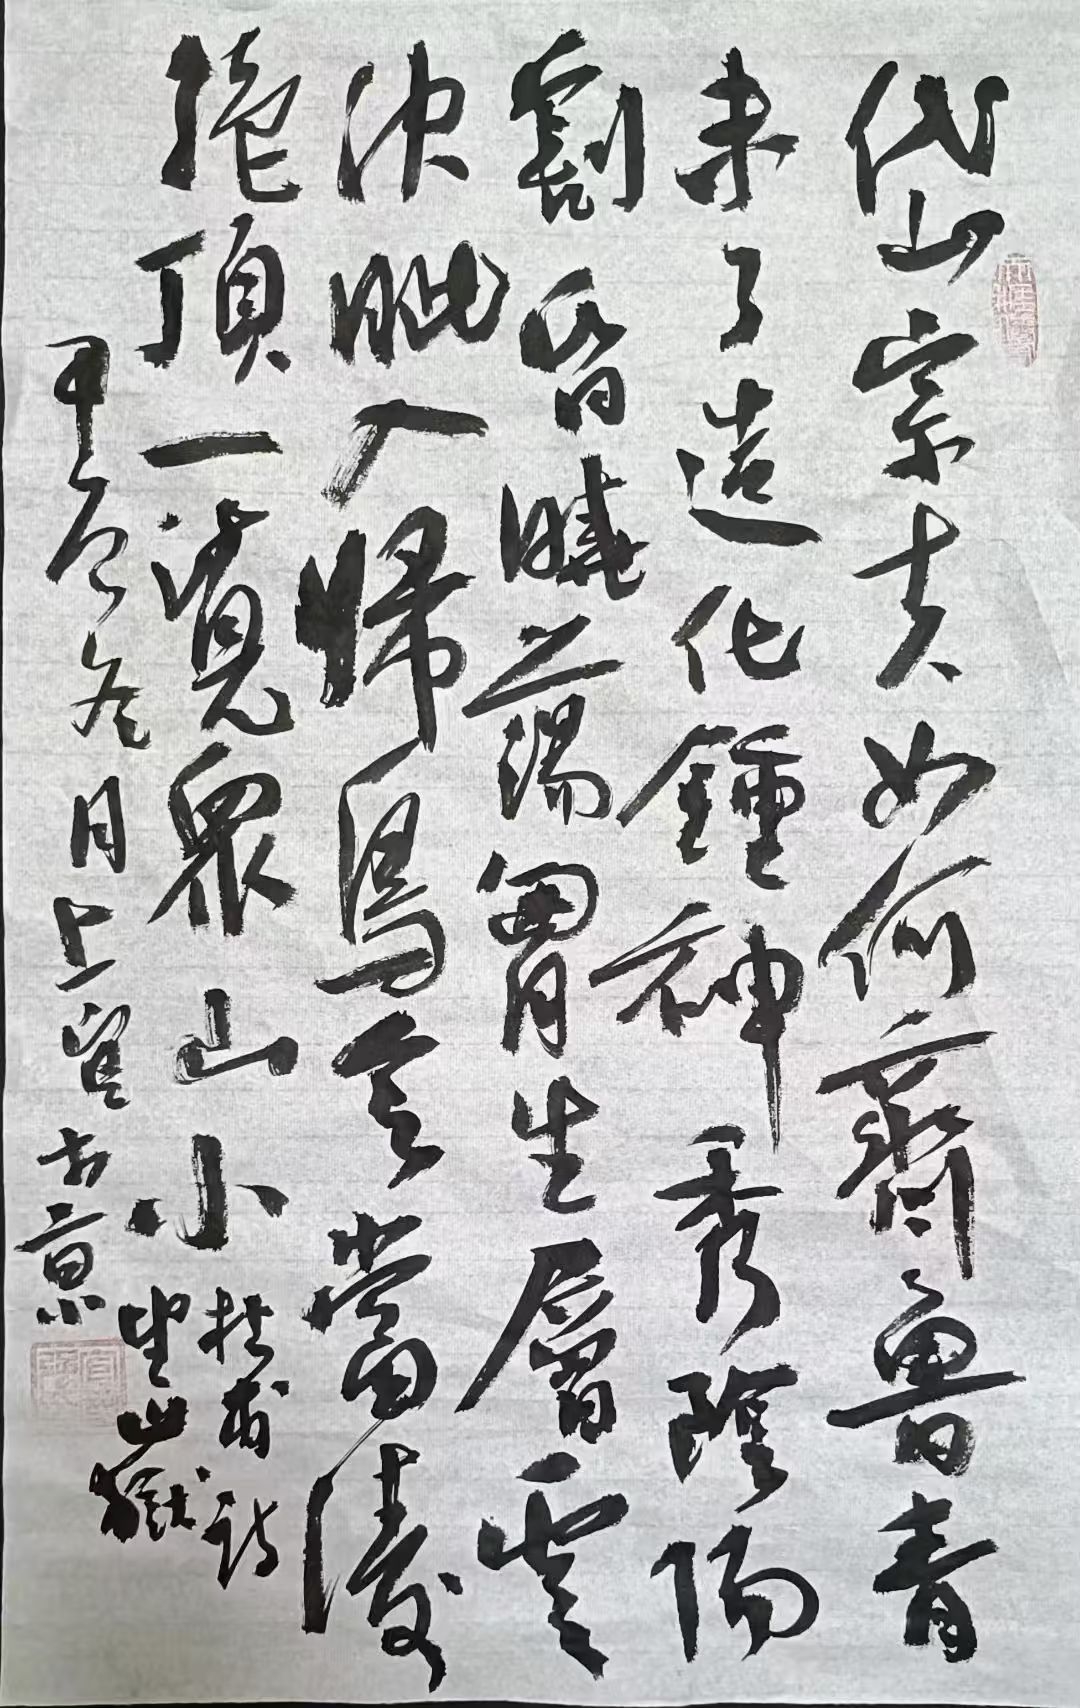 岱宗夫如何齊魯青
未了造化鍾神秀陰陽
割昏曉蕩胷生層雲
決眦入歸鳥會當淩
絕頂一覽眾山小
杜甫詩
望嶽
甲辰冬月上望